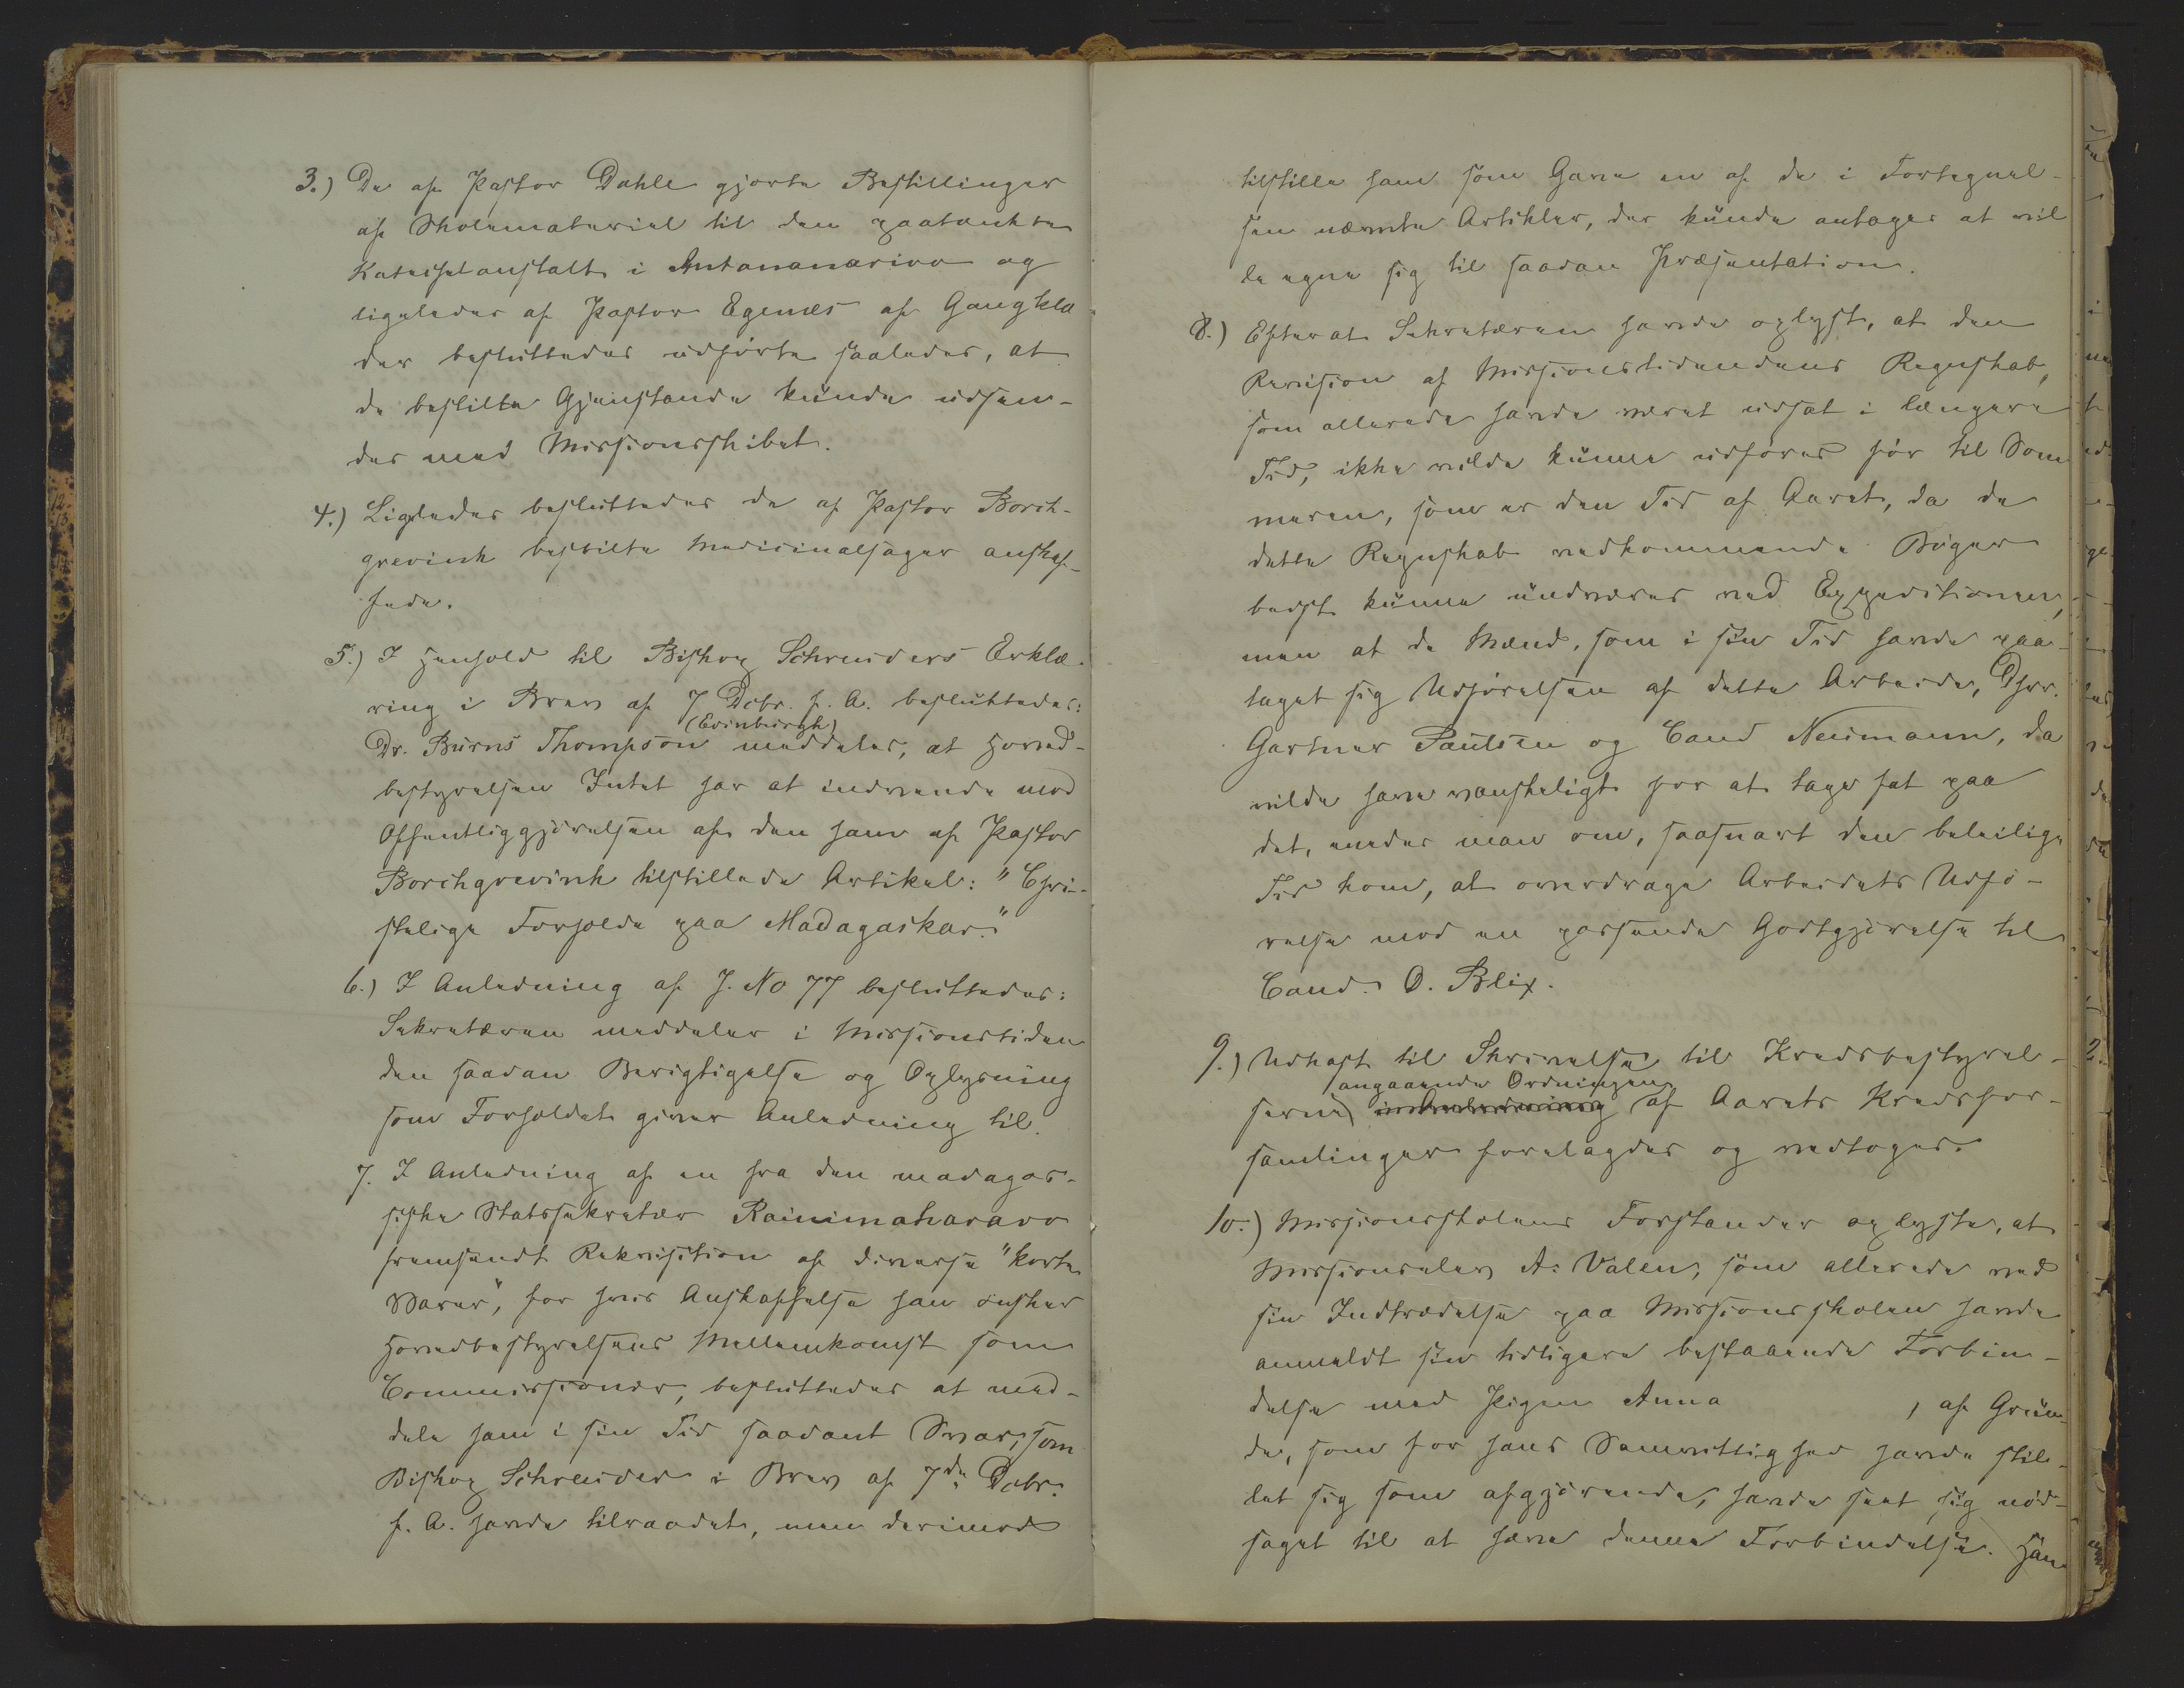 3.) De af Pastor Dahle gjorte Bestillinger
af Skolemateriel til den paatænkte
Katechetanstalt i Antananarivo og
ligeledes af Pastor Egenæs af Gangklæ
der besluttedes udførte saaledes, at
de bestilte Gjenstande kunde udsen-
des med Missionsskibet.
4.) Ligeledes besluttedes de af Pastor Borch-
grevink bestilte Medicinalsager anskaf-
fede.
5.) I Henhold til Biskop Schreuders Erklæ-
ring i Brev af 7 Dcbr. f. A. besluttedes:
(Edinburgh)
Dr. Burns Thompson meddeles, at Hoved-
bestyrelsen Intet har at indvende mod
Offentliggjørelsen af den ham af Pastor
Borchgrevink tilstillede Artikel: "Chri-
stelige Forholde paa Madagaskar."
6.) I Anledning af J. No 77 besluttedes:
Sekretæren meddeler i Missionstiden
den saadan Berigtigelse og Oplysning
som Forholdet giver Anledning til.
7. I Anledning af en fra den madagas-
siske Statssekretær Rainimaharavo
fremsendt Rekvisition af diverse "korte
Varer", for hvis Anskaffelse han ønsker
Hovedbestyrelsens Mellemkomst som
Commissionær, besluttedes at med-
dele ham i sin Tid saadant Svar, som
Biskop Schreuder i Brev af 7de Dcbr.
f. A. havde tilraadet, men derimod
tilstille ham som Gave en af de i Fortegnel-
sen nævnte Artikler, der kunde antages at vil
le egne sig til saadan Præsentation.
8.) Efterat Sekretæren havde oplyst, at den
Revision af Missionstidendens Regnskab,
som allerede havde været udsat i længere
Tid, ikke vilde kunne udføres før til Som
meren, som er den Tid af Aaret, da de
dette Regnskab vedkommende Bøger
bedst kunne undværes ved Expeditionen,
men at de Mænd, som i sin Tid havde paa-
taget sig Udførelsen af dette Arbeide, Dhrr.
Gartner Paulsen og Cand Neumann, da
vilde have vanskeligt for at tage fat paa
det, enedes man om, saasnart den beleilige
Tid kom, at overdrage Arbeidets Udfø-
relse mod en passende Godtgjørelse til
Cand. O. Blix.
9.) Udkast til Skrivelse til Kredsbestyrel-
angaaende Ordningen
serne i Anledning af Aarets Kredsfor-
samlinger forelagdes og vedtoges.
10.) Missionsskolens Forstander oplyste, at
Missionselev A. Valen, som allerede ved
sin Indtrædelse paa Missionsskolen havde
anmeldt sin tidligere bestaaende Forbin-
delse med Pigen Anna , af Grün-
de, som for hans Samvittighed havde stil-
let sig som afgjørende, havde seet sig nød-
saget til at hæve denne Forbindelse. Han